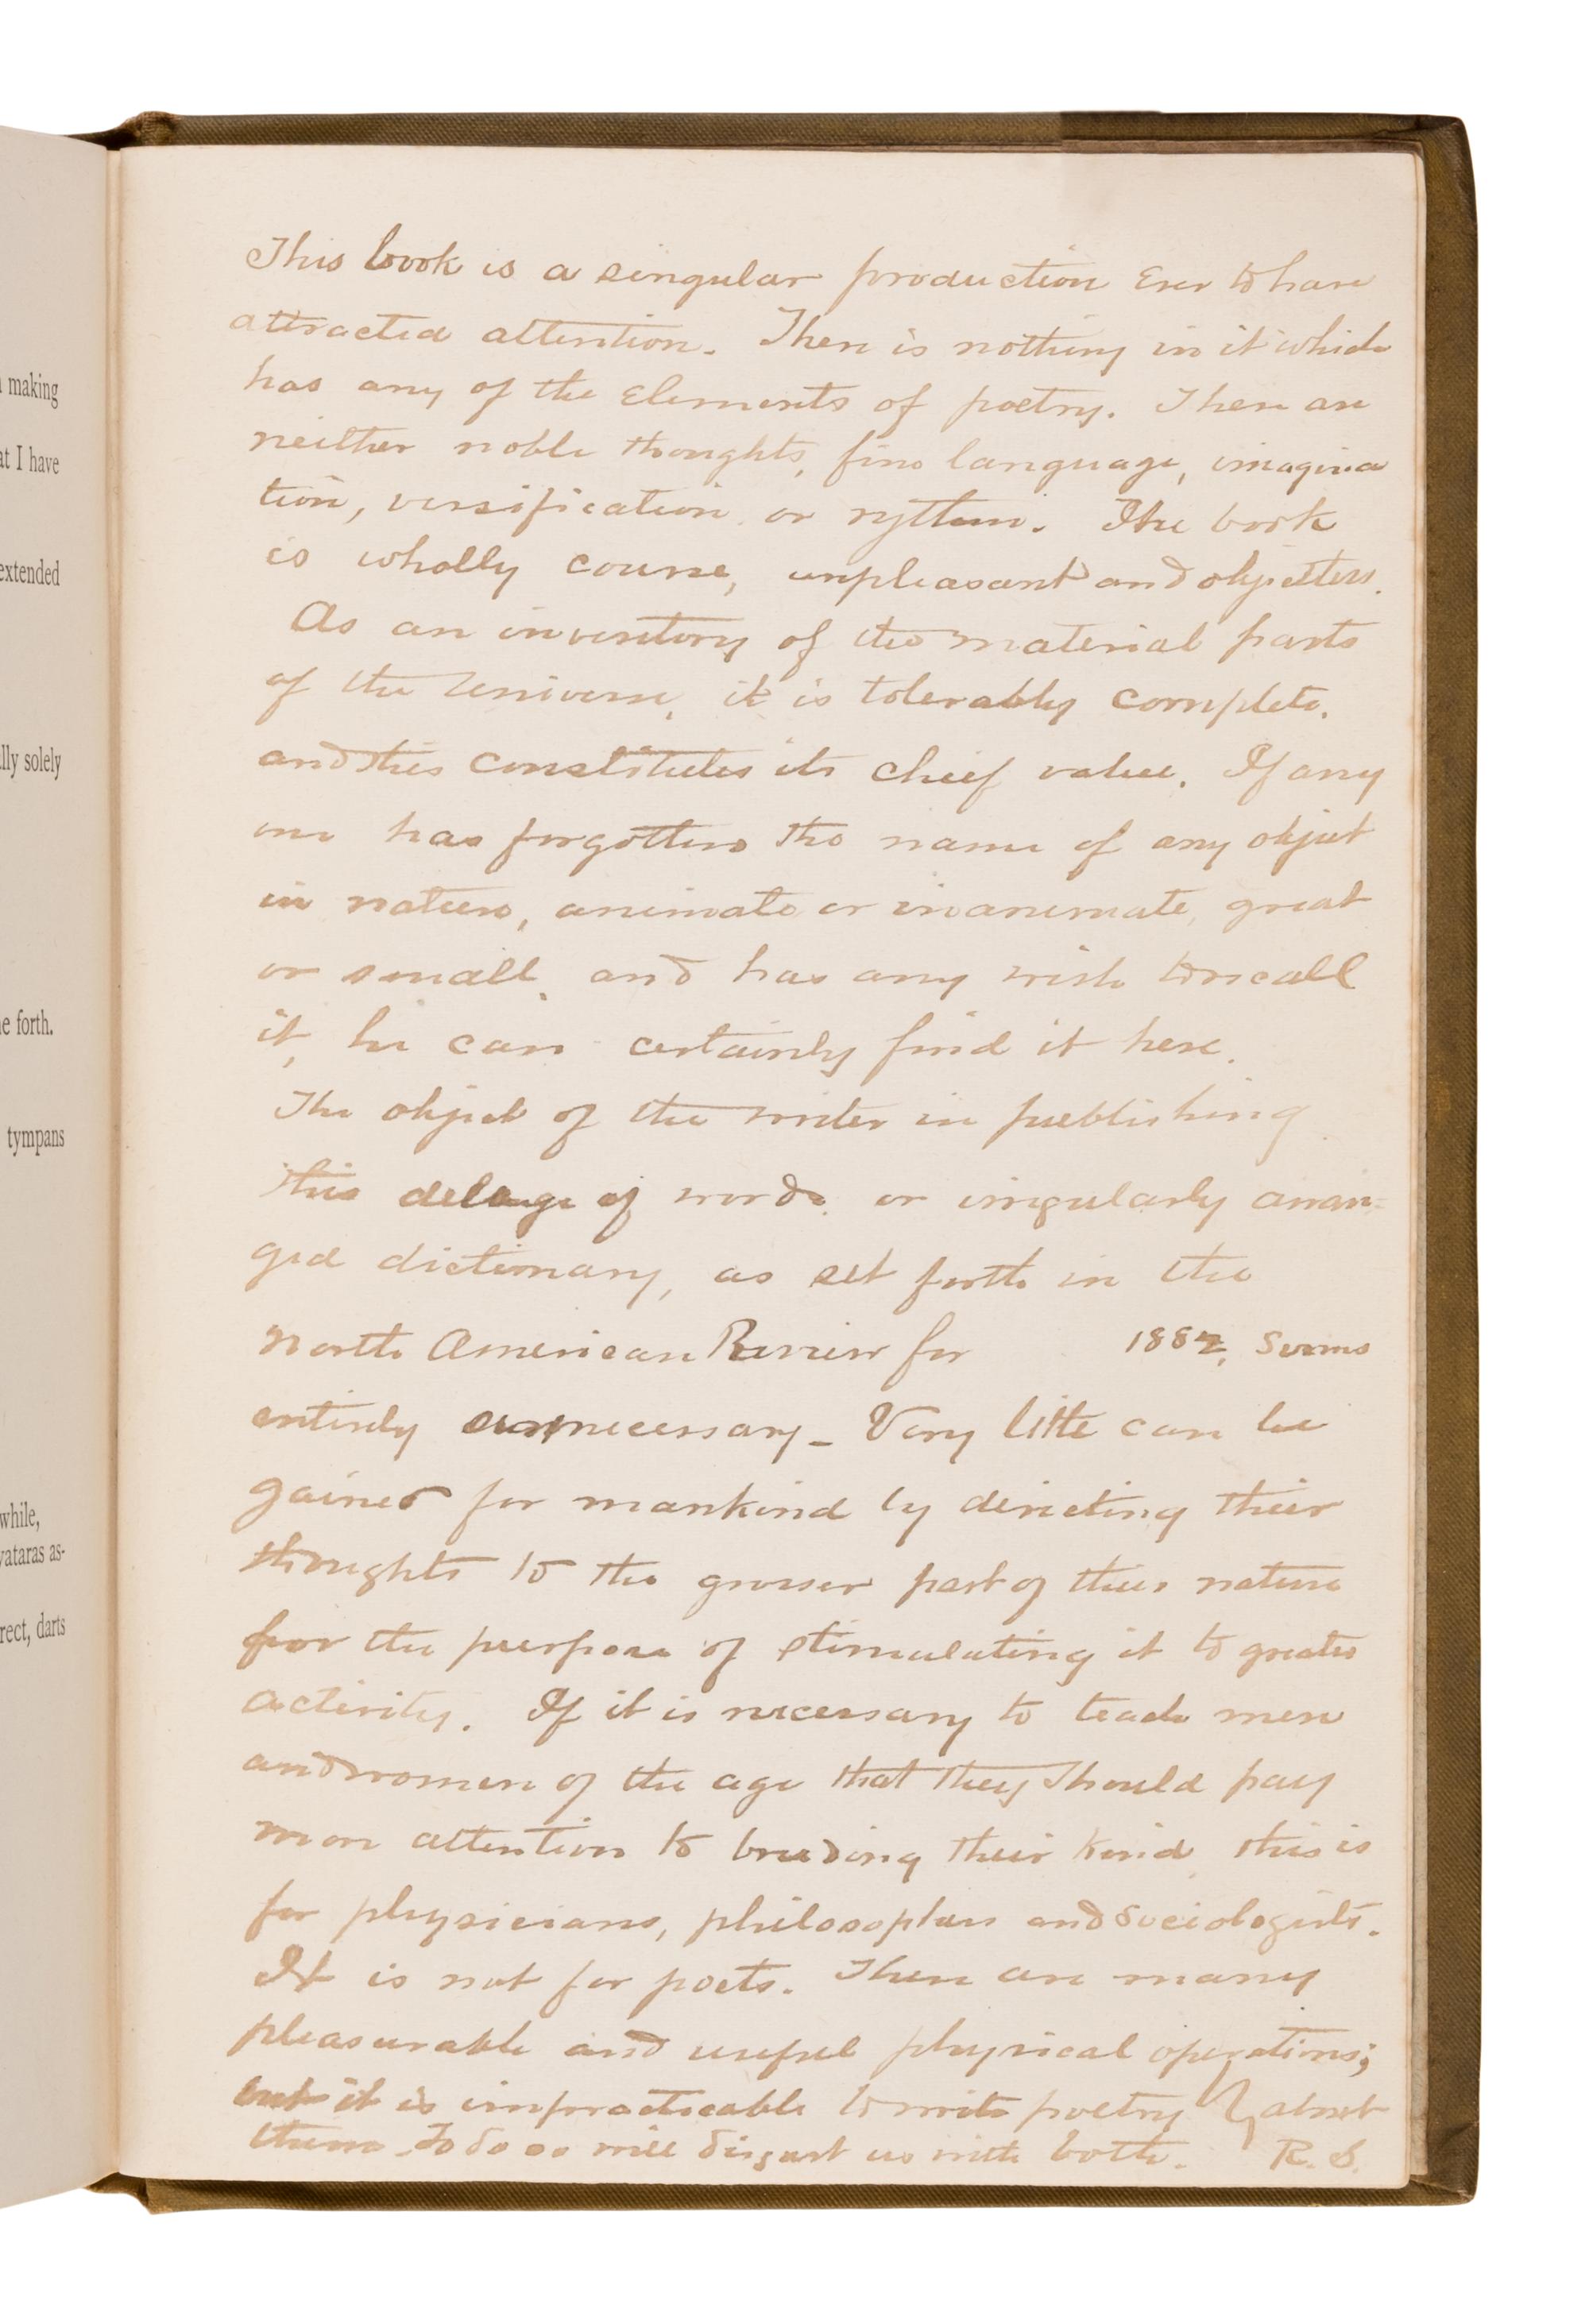 making
at I have
extended
lly solely
e forth.
tympans
while,
vataras as-
rect, darts
This book is a singular production ever to have
attracted attention. There is nothing in it which
has any of the elements of poetry. There are
neither noble thoughts, fine language, imagina
tion, versification or rythm. The book
is wholly course, unpleasant and objectless.
As an inventory of the material parts
of the Universe, it is tolerably complete,
and this constitutes its chief value. If any
one has forgotten the name of any object
in nature, animate or inanimate, great
or small, and has any wish to recall
it, he can certainly find it here.
The object of the writer in publishing
this deluge of words, or irregularly arran-
ged dictionary, as set forth in the
North American Review for 1882, seems
entirely unnecessary - Very little can be
gained for mankind by directing their
thoughts to the grosser part of their nature
for the purpose of stimulating it to greater
activity. If it is necessary to teach men
and women of the age that they should pay
more attention to breeding their kind, this is
for physicians, philosophers and sociologists.
It is not for poets. There are many
pleasurable and useful physical operations;
but it is impracticable to write poetry about
them. To do so will disgust us with both. R. S.